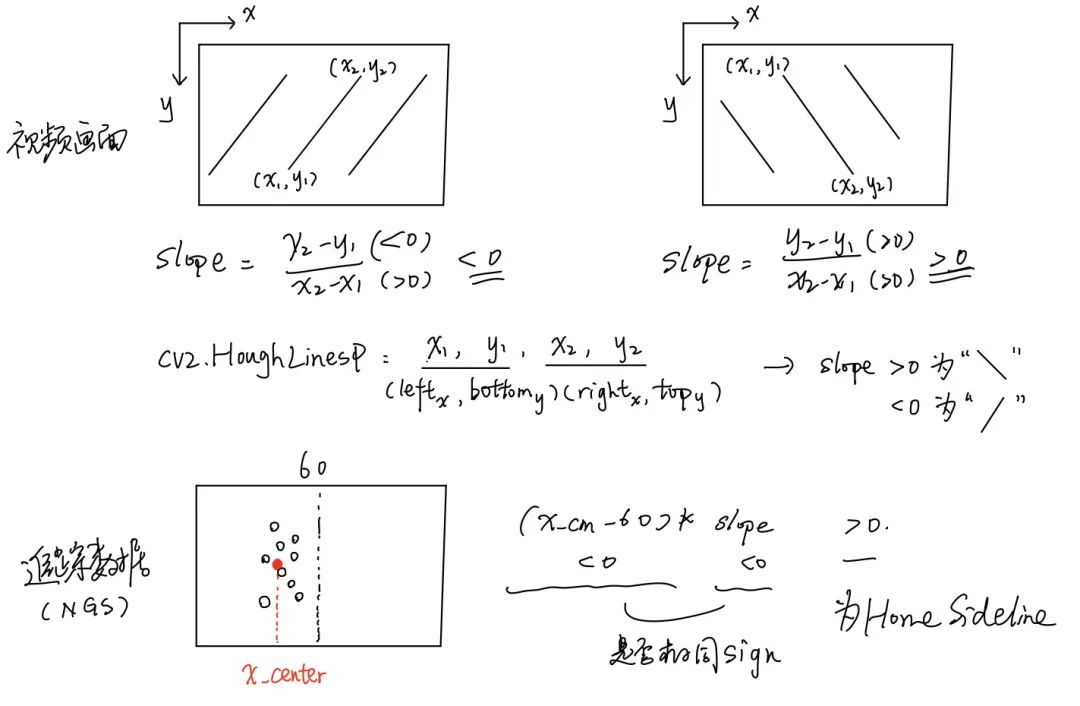 x
y
(x₂, y₂)
(x₁, y₁)
x
y
(x₁, y₁)
(x₂, y₂)
视频画面
slope = y₂-y₁ (<0) / x₂-x₁ (>0) <0
slope = y₂-y₁ (>0) / x₂-x₁ (>0) >0
cv2.HoughLinesP: x₁, y₁, x₂, y₂ → slope >0 为 "\"
(left_x, bottom_y) (right_x, top_y) <0 为 "/"
60
追踪数据
(NGS)
x_center
(x_cm - 60) * slope >0.
<0 <0
是否相同 sign
为 Home Sideline